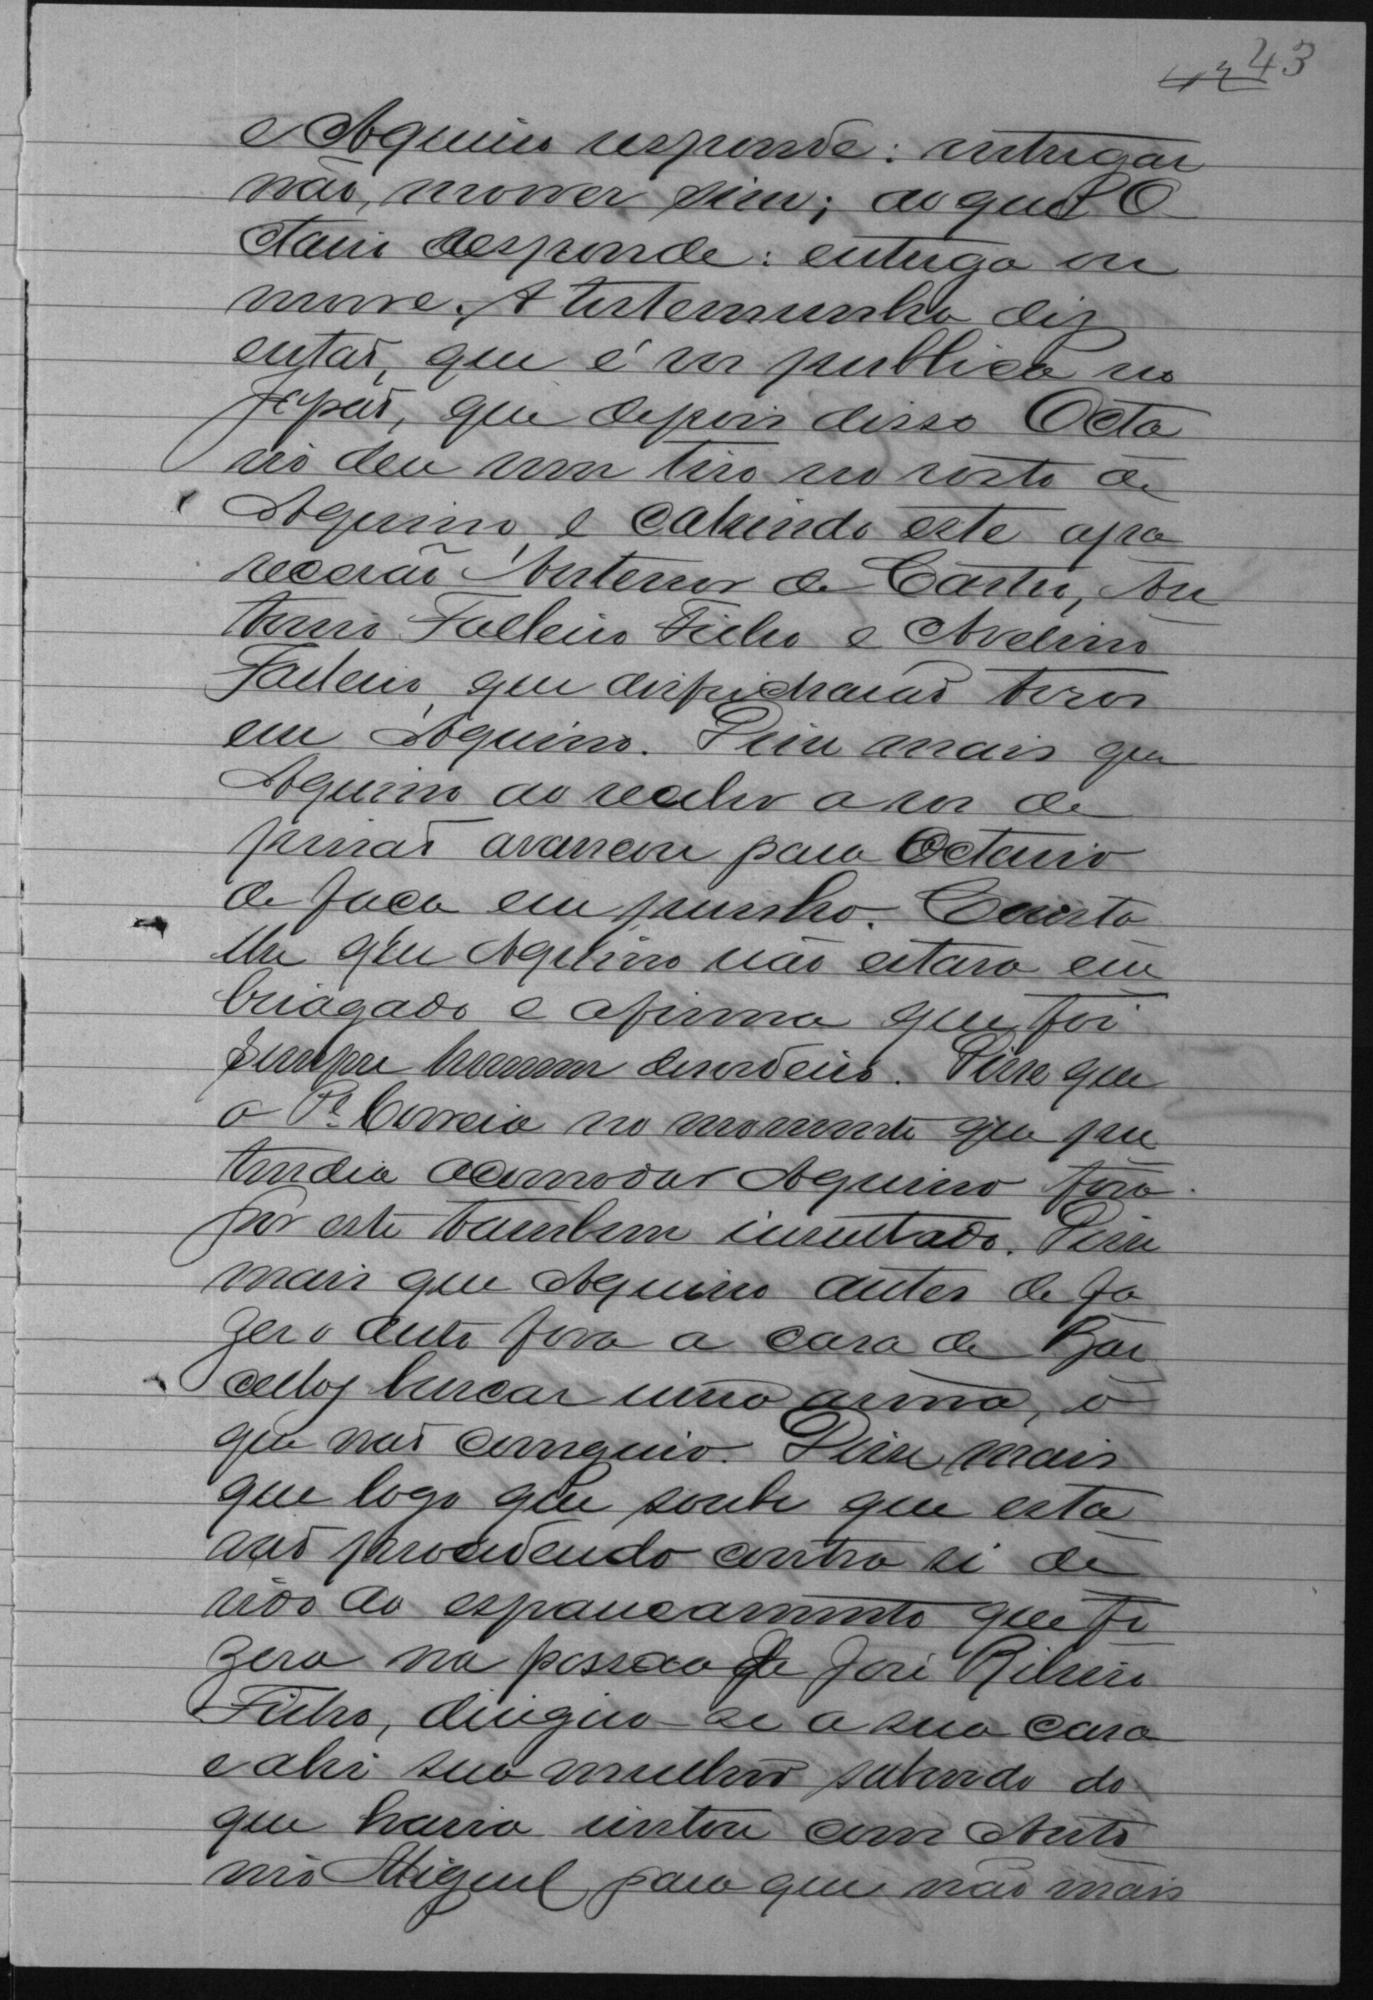 42 43
e Aquino responde: entregar
não, morrer sim; ao que O
ctavio responde: entrega ou
morre. A testemunha diz
entaõ, que é voz publica no
Jepaõ, que depois disso Octa
vio deu um tiro no rosto de
Aquino, e cahindo este apa
receraõ Antenor de Castro, An
tonio Falleiro Filho e Avelino
Falleiro, que dispicharaõ tiros
em Aquino. Disse mais que
Aquino ao receber a voz de
prisaõ avançou para Octavio
de faca em punho. Consta
lhe que Aquino não estava em
briagado e afirma que foi
sempre homem desordeiro. Disse que
o Pe. Correia no momento que pre
tendia acomodar Aquino fora
por este tambem insultado. Disse
mais que Aquino antes de fa
zer o auto fora a casa de Bar
cellos buscar uma arma, o
que naõ conseguio. Disse mais
que logo que soube que esta
vaõ procedendo contra si de
vido ao espancamento que fi
zera na pessoa de José Ribeiro
Filho, dirigiu-se a sua casa
e ahi sua mulher sabendo do
que havia instou com Anto
nio Miguel para que não mais